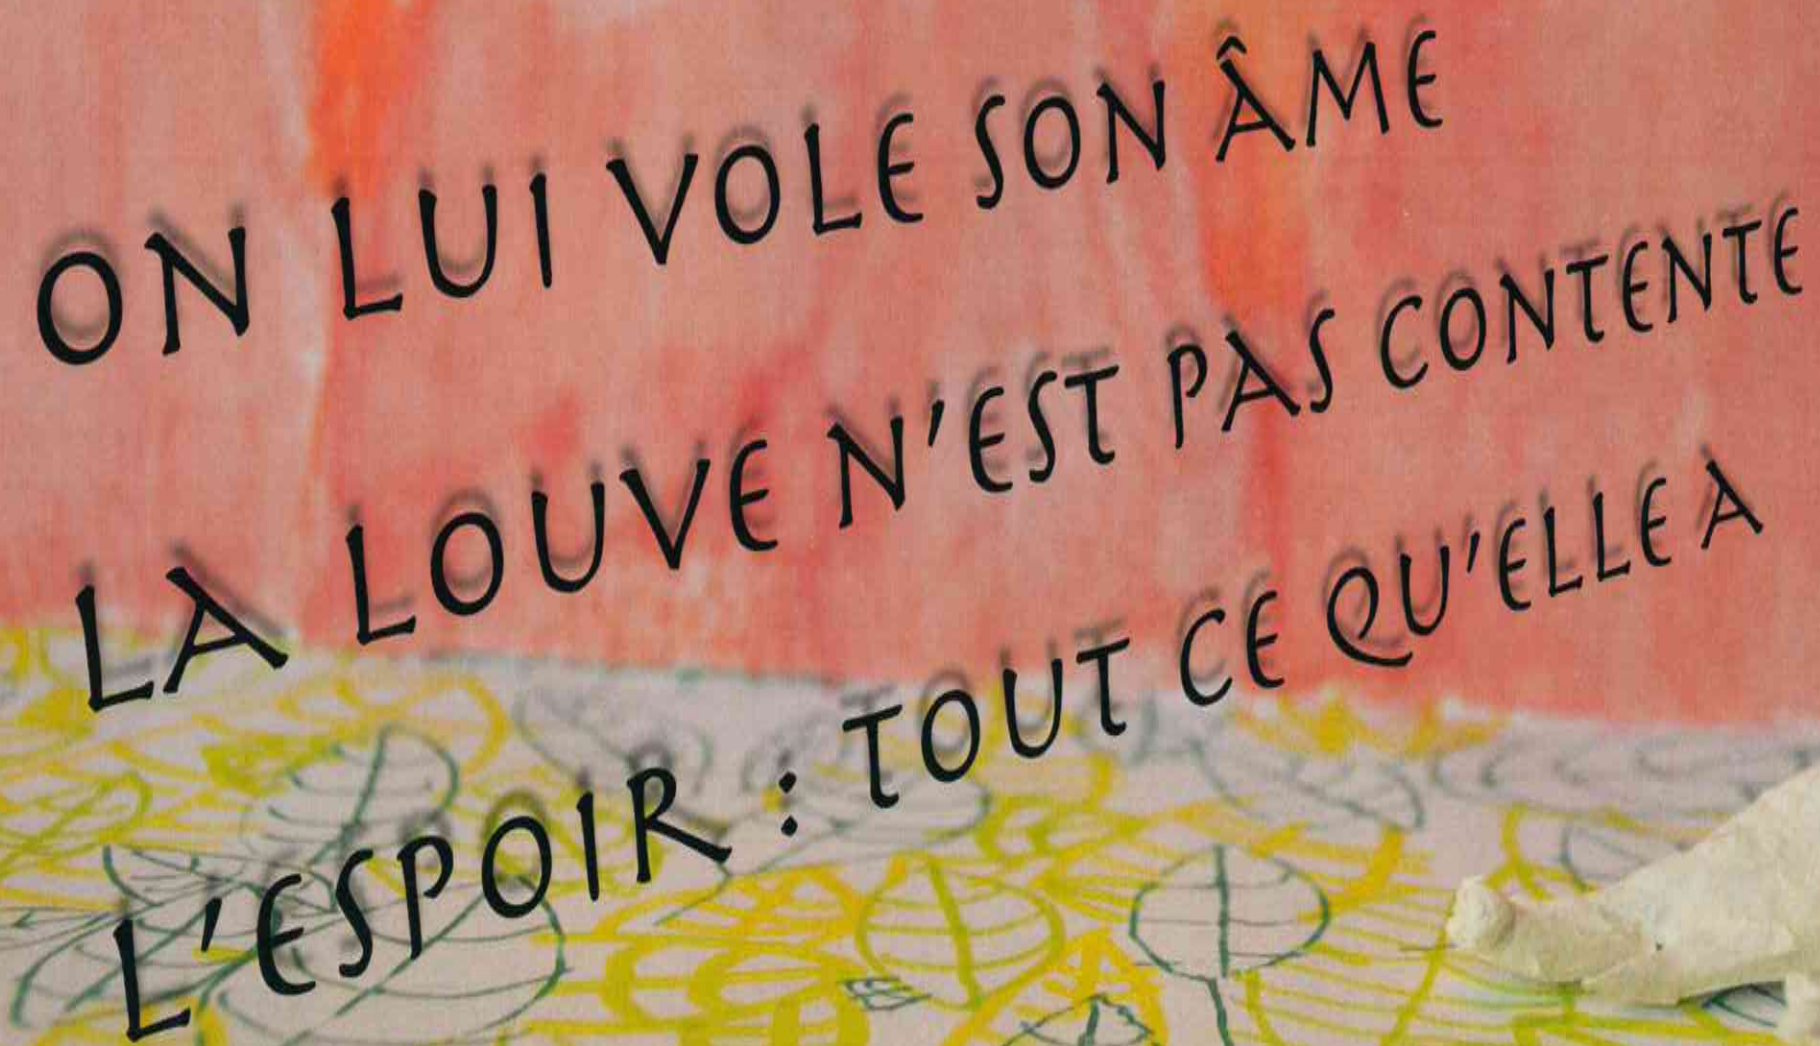 ON LUI VOLE SON ÂME
LA LOUVE N'EST PAS CONTENTE
L'ESPOIR : TOUT CE QU'ELLE A